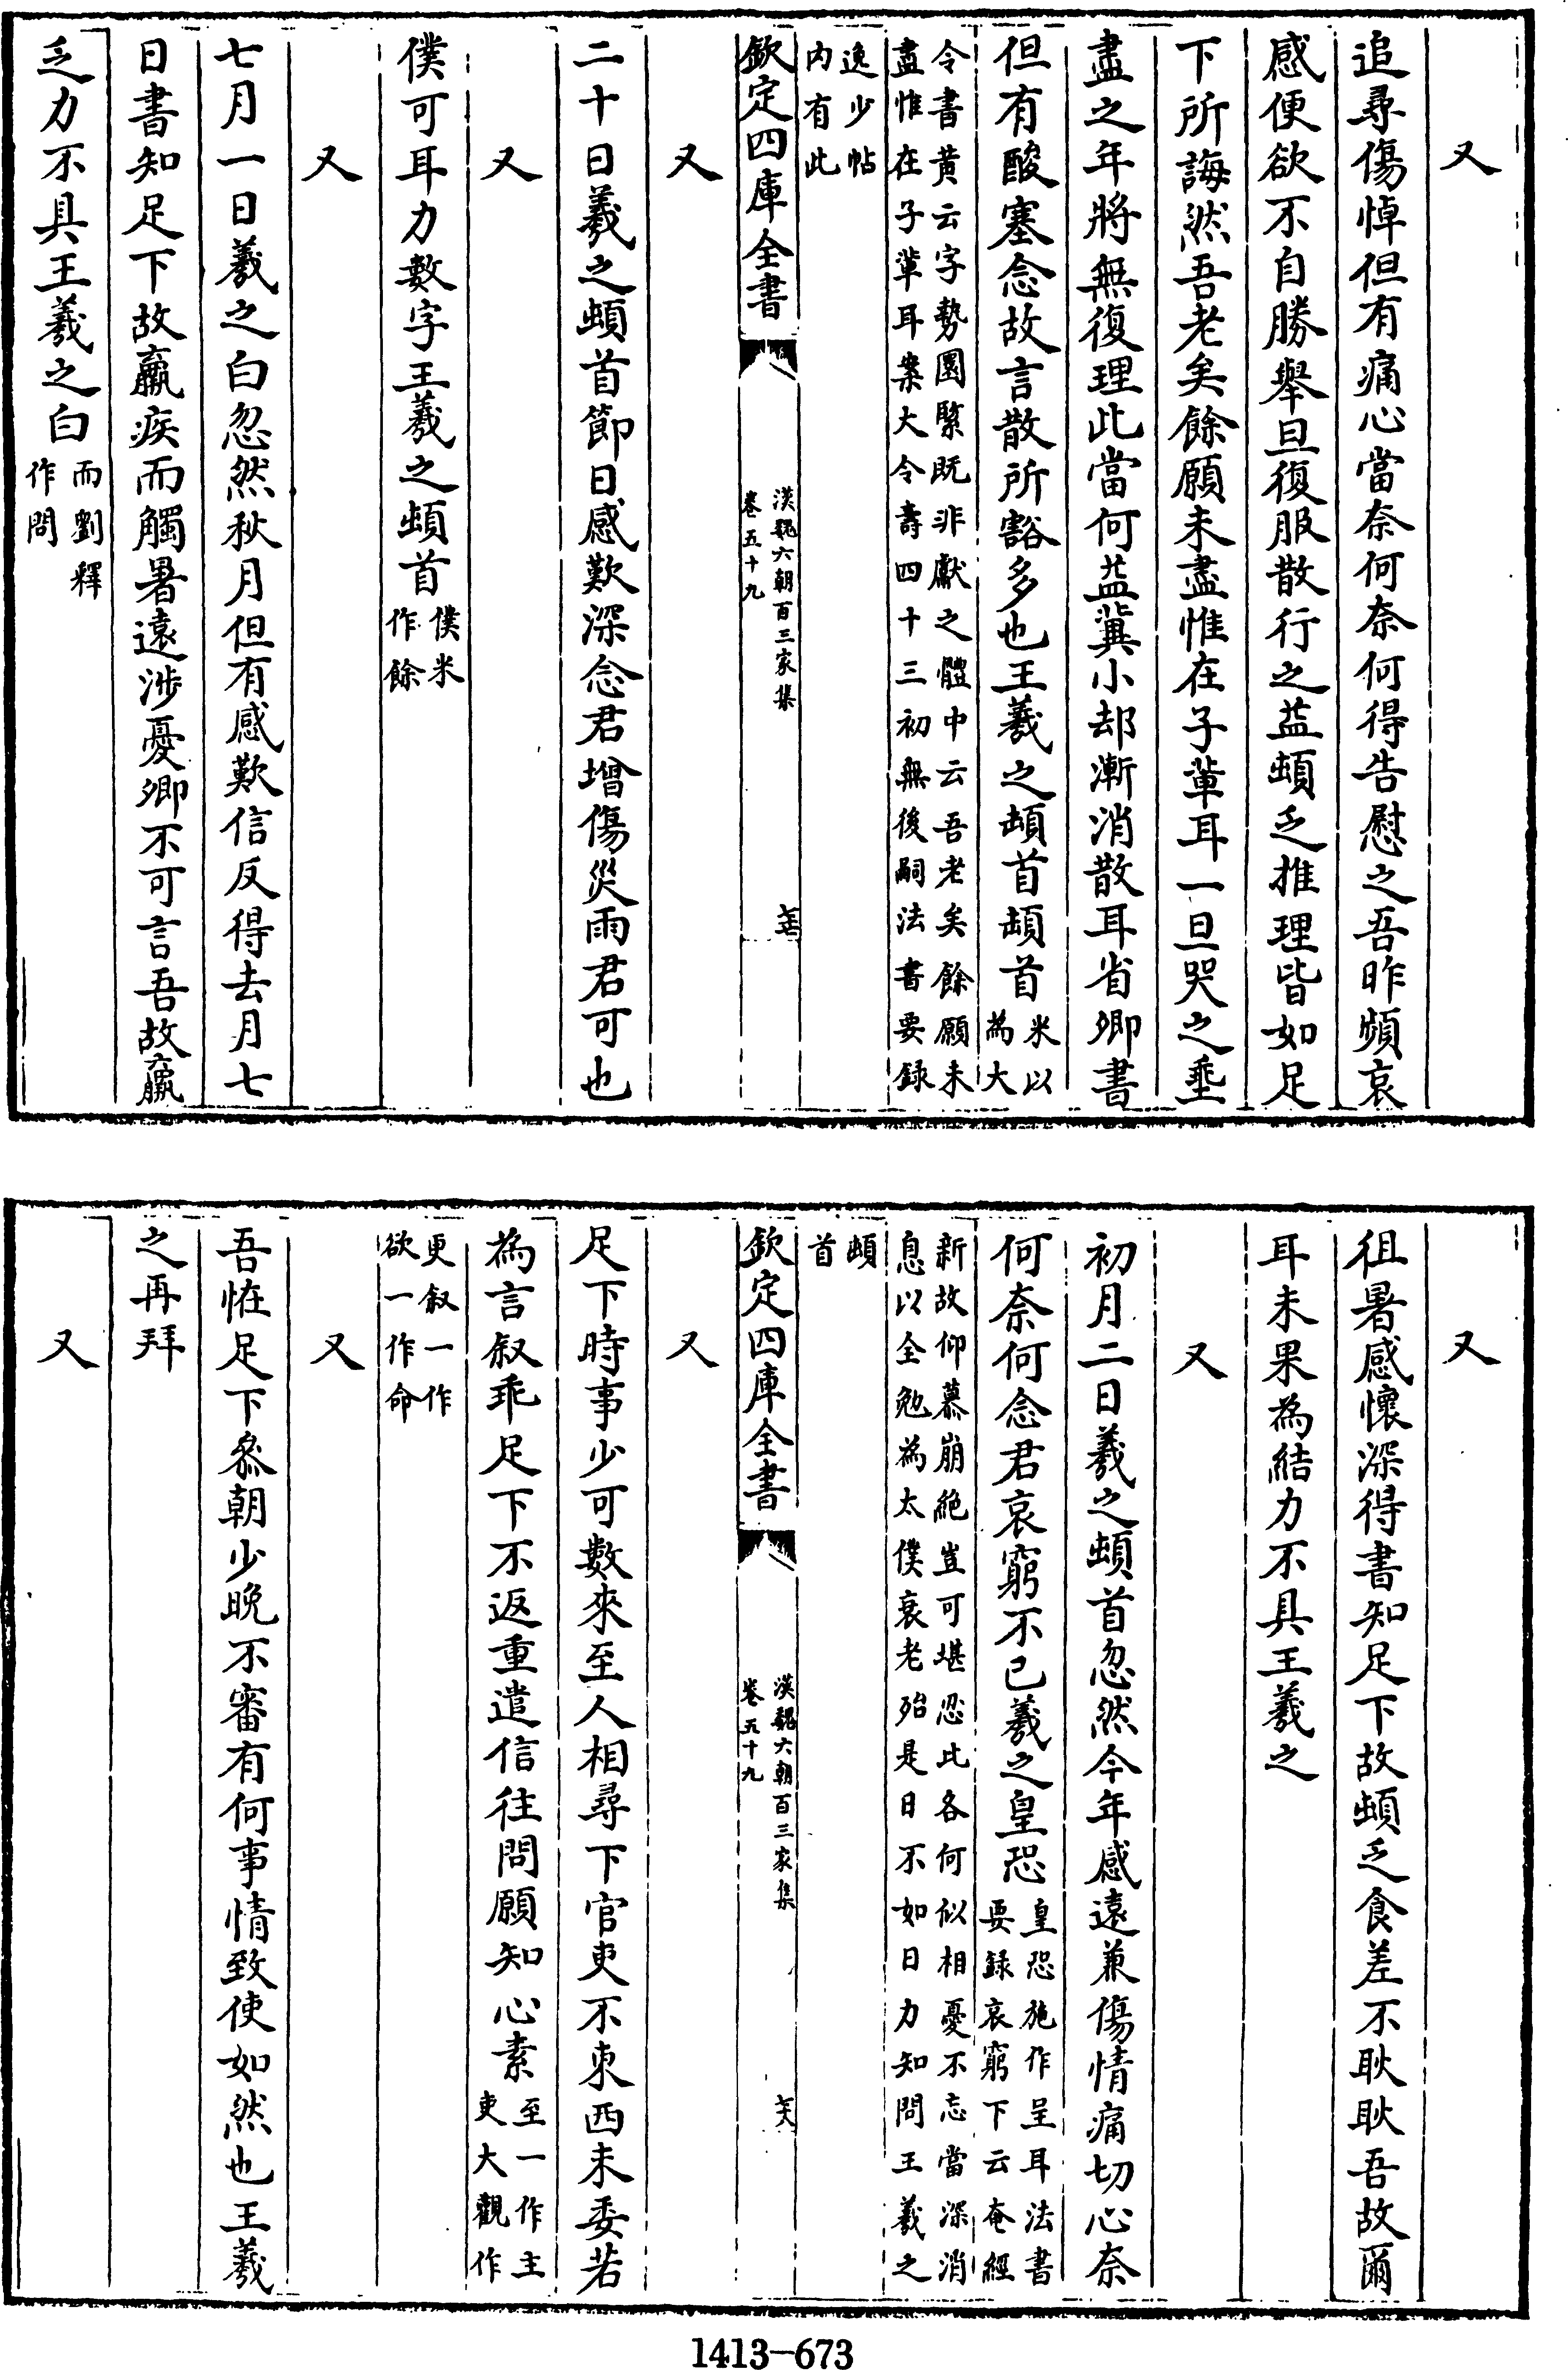 又
追尋傷悼但有痛心當奈何奈何得告慰之吾昨頻哀
感便欲不自勝舉旦復服散行之益頓乏推理皆如足
下所誨然吾老矣餘願未盡惟在子輩耳一旦哭之垂
盡之年將無復理此當何益冀小却漸消散耳省卿書
但有酸塞念故言散所豁多也王羲之頓首頓首米以為大
令書黄云字勢圓緊既非獻之體中云吾老矣餘願未
盡惟在子輩耳案大令壽四十三初無後嗣法書要録
逸少帖
内有此
欽定四庫全書
漢魏六朝百三家集
卷五十九
又
二十日羲之頓首節日感歎深念君增傷災雨君可也
又
僕可耳力數字王羲之頓首僕米作餘
又
七月一日羲之白忽然秋月但有感歎信反得去月七
日書知足下故羸疾而觸暑遠涉憂卿不可言吾故羸
乏力不具王羲之白而劉釋作問
又
徂暑感懷深得書知足下故頓乏食差不耿耿吾故爾
耳未果為結力不具王羲之
又
初月二日羲之頓首忽然今年感遠兼傷情痛切心奈
何奈何念君哀窮不已羲之皇恐皇恐施作呈耳法書要録哀窮下云奄經
新故仰慕崩絶豈可堪忍此各何似相憂不忘當深消
息以全勉為太僕衰老殆是日不如日力知問王羲之
頓
首
欽定四庫全書
漢魏六朝百三家集
卷五十九
又
足下時事少可數來至人相尋下官吏不東西未委若
為言叙乖足下不返重遣信往問願知心素至一作主吏大觀作
更叙一作
欲一作命
又
吾恠足下叅朝少晚不審有何事情致使如然也王羲
之再拜
又
1413-673